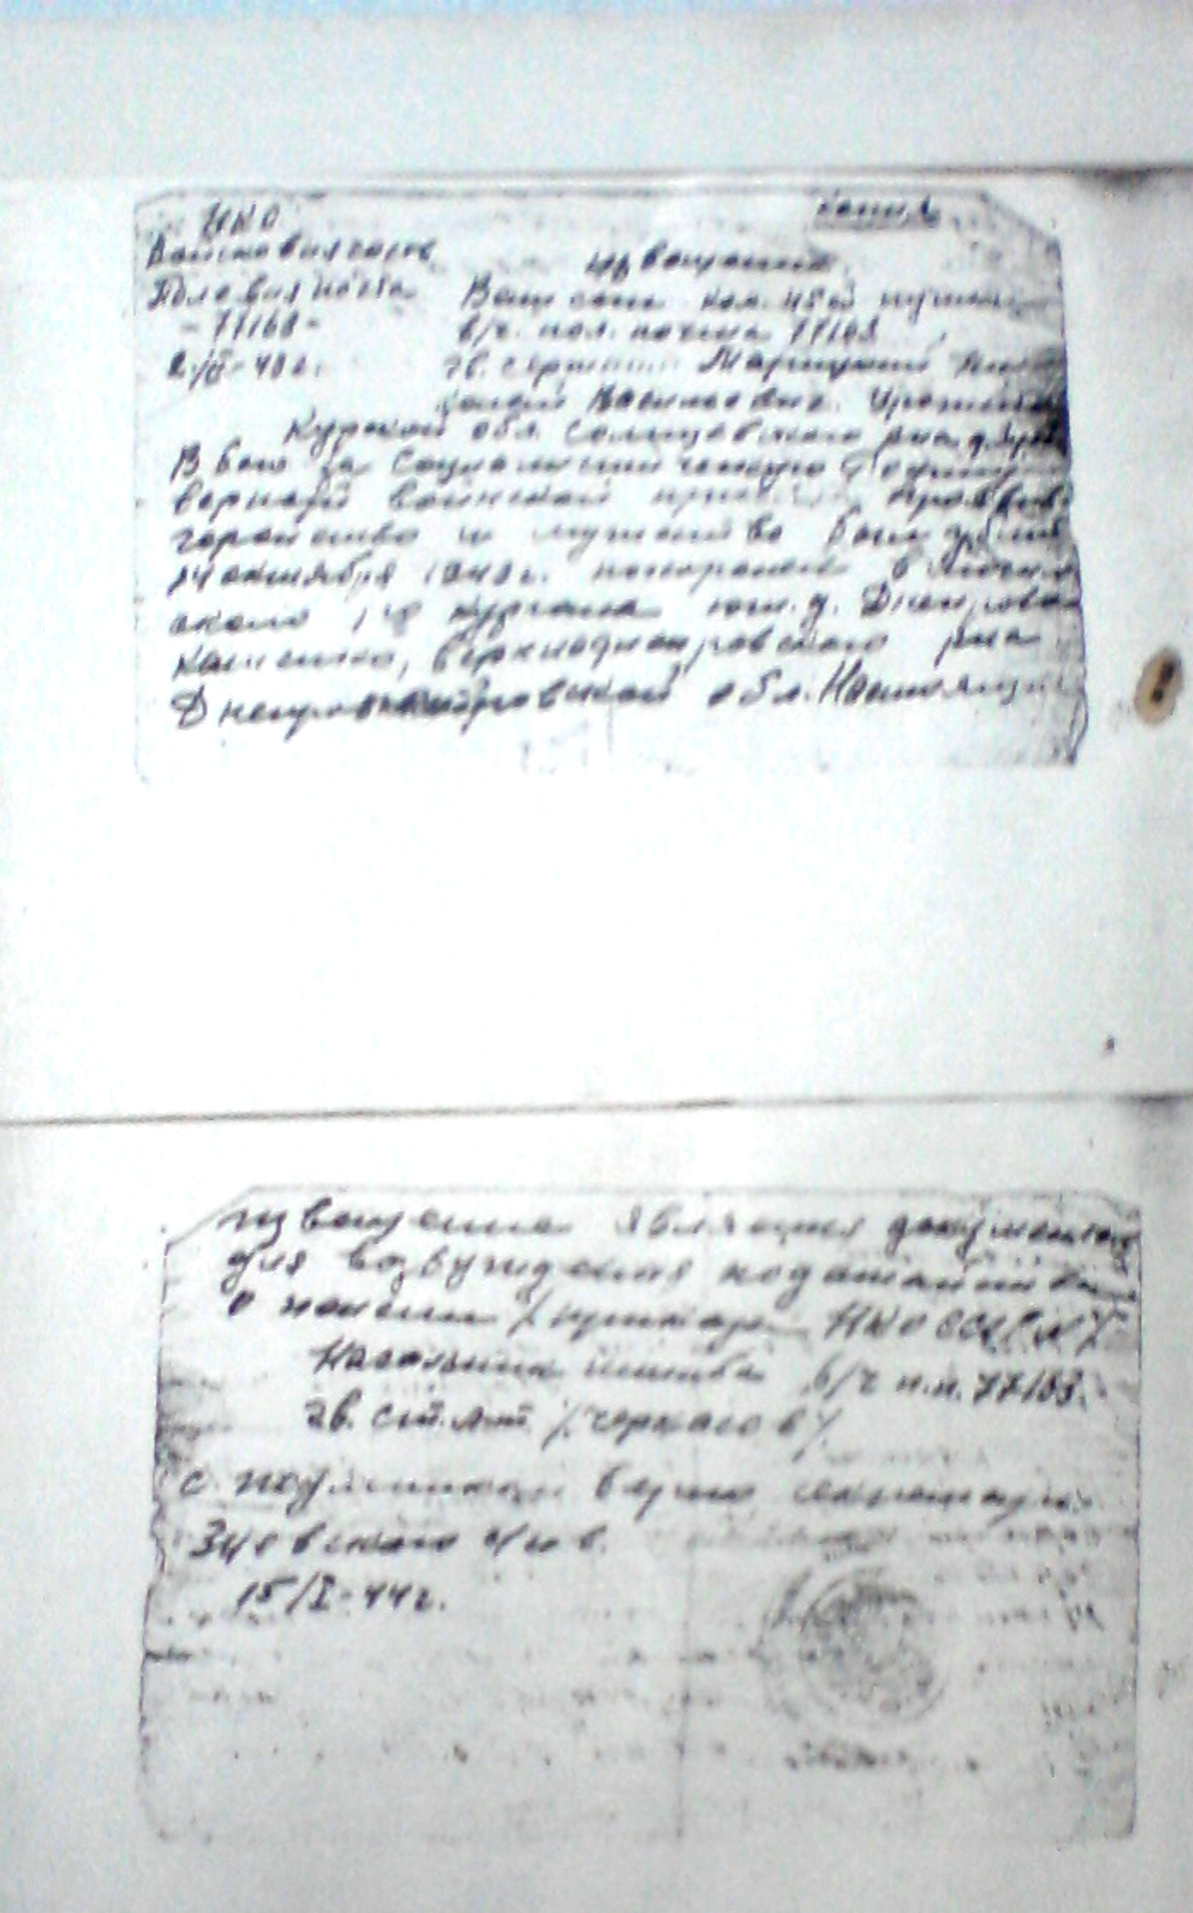 НКО
Копия
Войсковая часть
Извещение
Полевая почта
Ваш сын ком. 45й пушки
- 77163 -
в/ч. пол. почта 77163
гв. сержант Марицкий Ник
колай Васильевич. Уроженец
Курской обл. Солнцевского рна
В бою за Социалистическую Родину
верный воинской присяге, проявив
геройство и мужество был убит
24 октября 1943 г. похоронен в
около кургана юж. д. Днепрово
каменка, Верхнеднепровского рна
Днепропетровской обл. Настоящее
извещение является документом
для возбуждения ходатайства
о пенсии / приказ НКО СССР №
Начальник штаба в/ч п.п. 77163.
гв. ст. лт. /Черкасов/
с подлинным верно секретарь
15/I-44г.